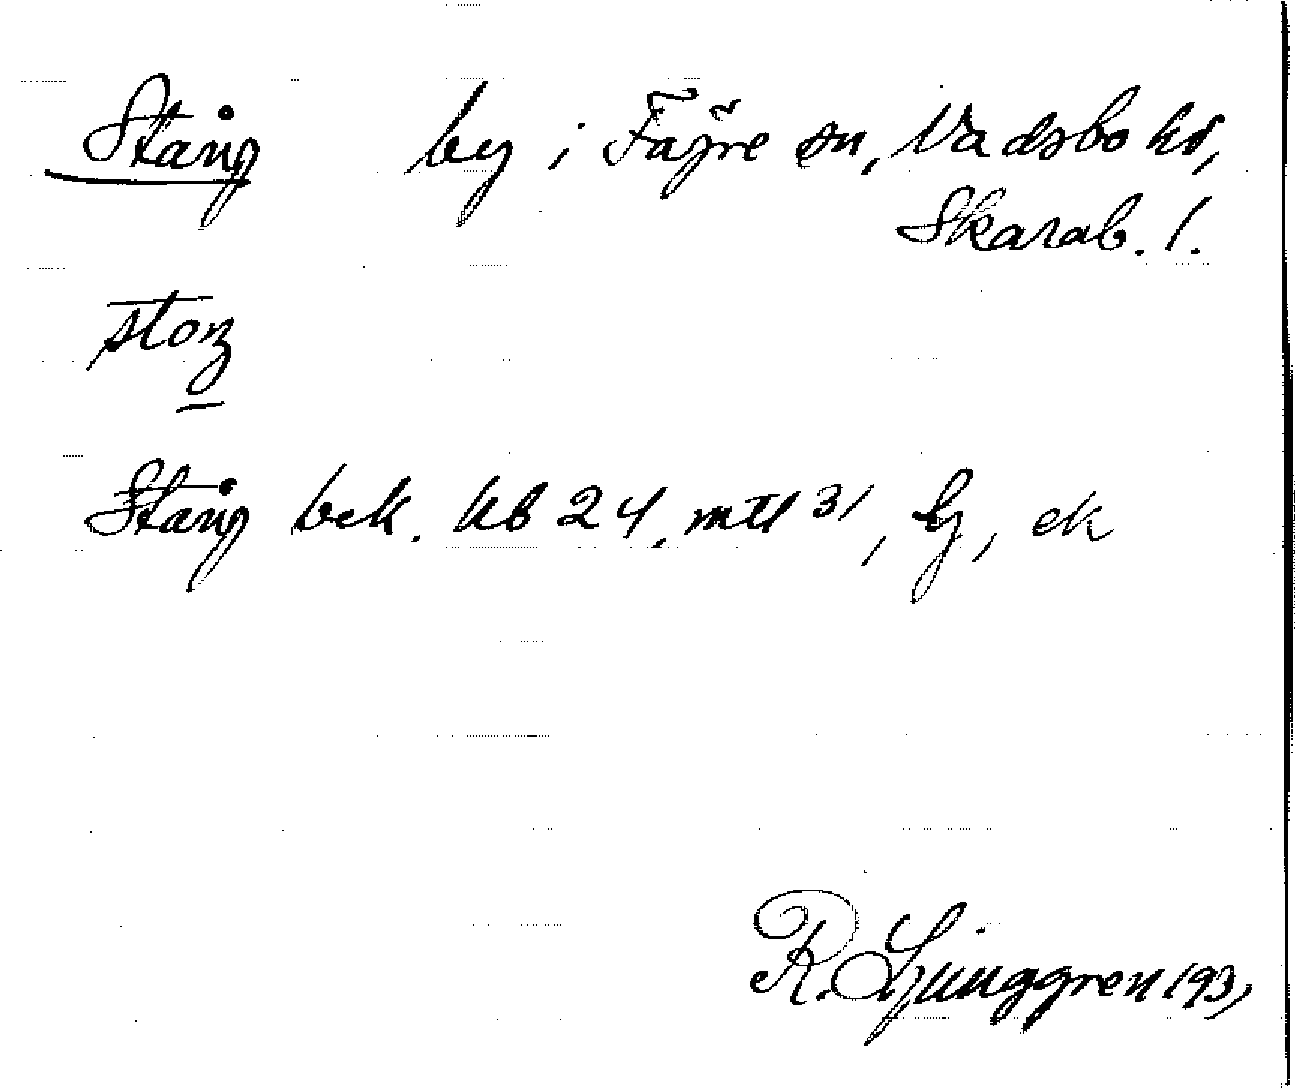 Stång by i Fägre sn, Vadsbo hd,
Skarab. l.
Stång bek. kb 24, mtl 31, Lj, ek
R. Ljunggren 193